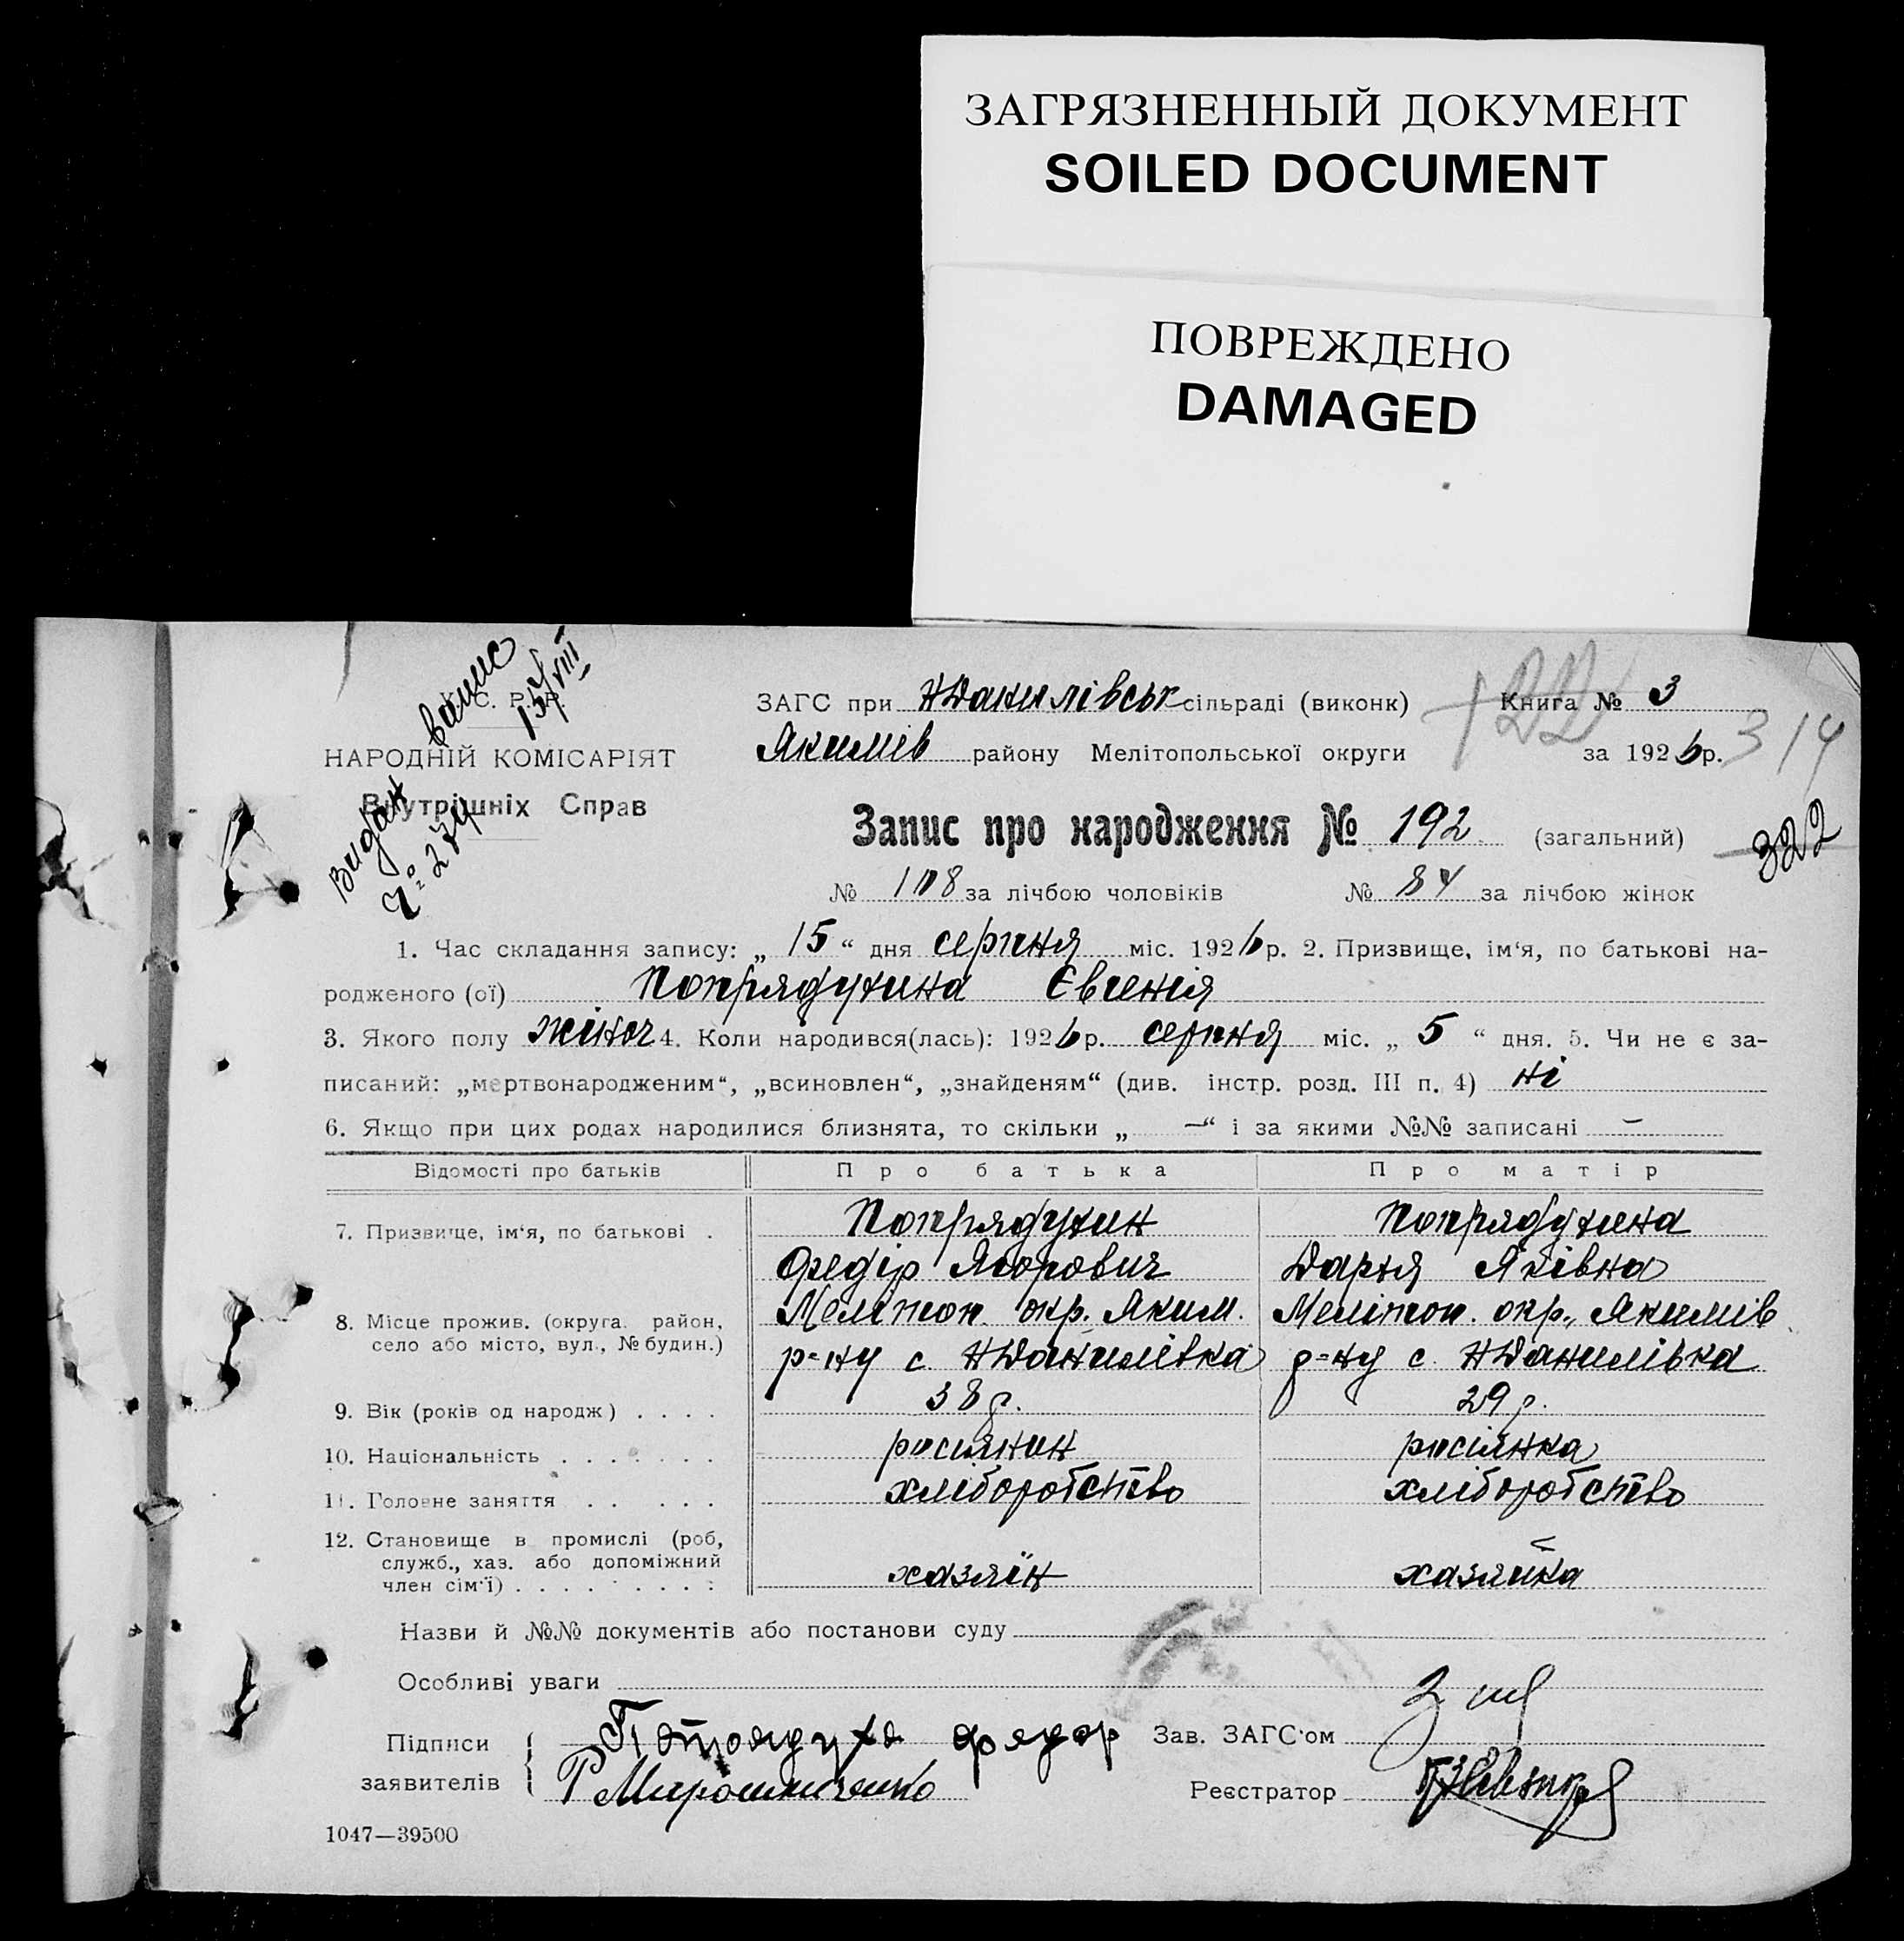 ЗАГРЯЗНЕННЫЙ ДОКУМЕНТ
SOILED DOCUMENT
ПОВРЕЖДЕНО
DAMAGED
Видан
вапис
№ 274
15/VIII
У. С. Р. Р.
НАРОДНІЙ КОМІСАРІЯТ
Внутрішніх Справ
ЗАГС при НДанилівськ сільраді (виконк)
Якимів району Мелітопольської округи
122
Книга № 3
за 1926 р.
314
322
Запис про народження № 192 (загальний)
№ 108 за лічбою чоловіків № 84 за лічбою жінок
1. Час складання запису: „ 15 “ дня серпня міс. 1926 р. 2. Призвище, ім‘я, по батькові на-
родженого (ої) Попрядухина Євгенія
3. Якого полу жіноч 4. Коли народився(лась): 1926 р. серпня міс. „ 5 “ дня. 5. Чи не є за-
писаний: „мертвонародженим“, „всиновлен“, „знайденям“ (див. інстр. розд. III п. 4) ні
6. Якщо при цих родах народилися близнята, то скільки „ —“ і за якими №№ записані —
Відомості про батьків Про батька Про матір
7. Призвище, ім‘я, по батькові . Попрядухин Попрядухина
Федір Ягорович Дарья Яківна
8. Місце прожив. (округа, район, село або місто, вул., № будин.) Меліпоп. окр. Яким. Меліпоп. окр., Якимів
р=ну с. НДанилівка р=ну с. НДанилівка
9. Вік (років од народж) . . . . 38 р. 29 р.
10. Національність . . . . . . . росіянин росіянка
11. Головне заняття . . . . . хліборобство хліборобство
12. Становище в промислі (роб, служб., хаз. або допоміжний член сім‘ї) . . . . . . . . . хазяїн хазяйка
Назви й №№ документів або постанови суду
Особливі уваги
Підписи заявителів { Попрядуха Федор
Р Мирошниченко
Зав. ЗАГС‘ом
Реєстратор
1047—39500